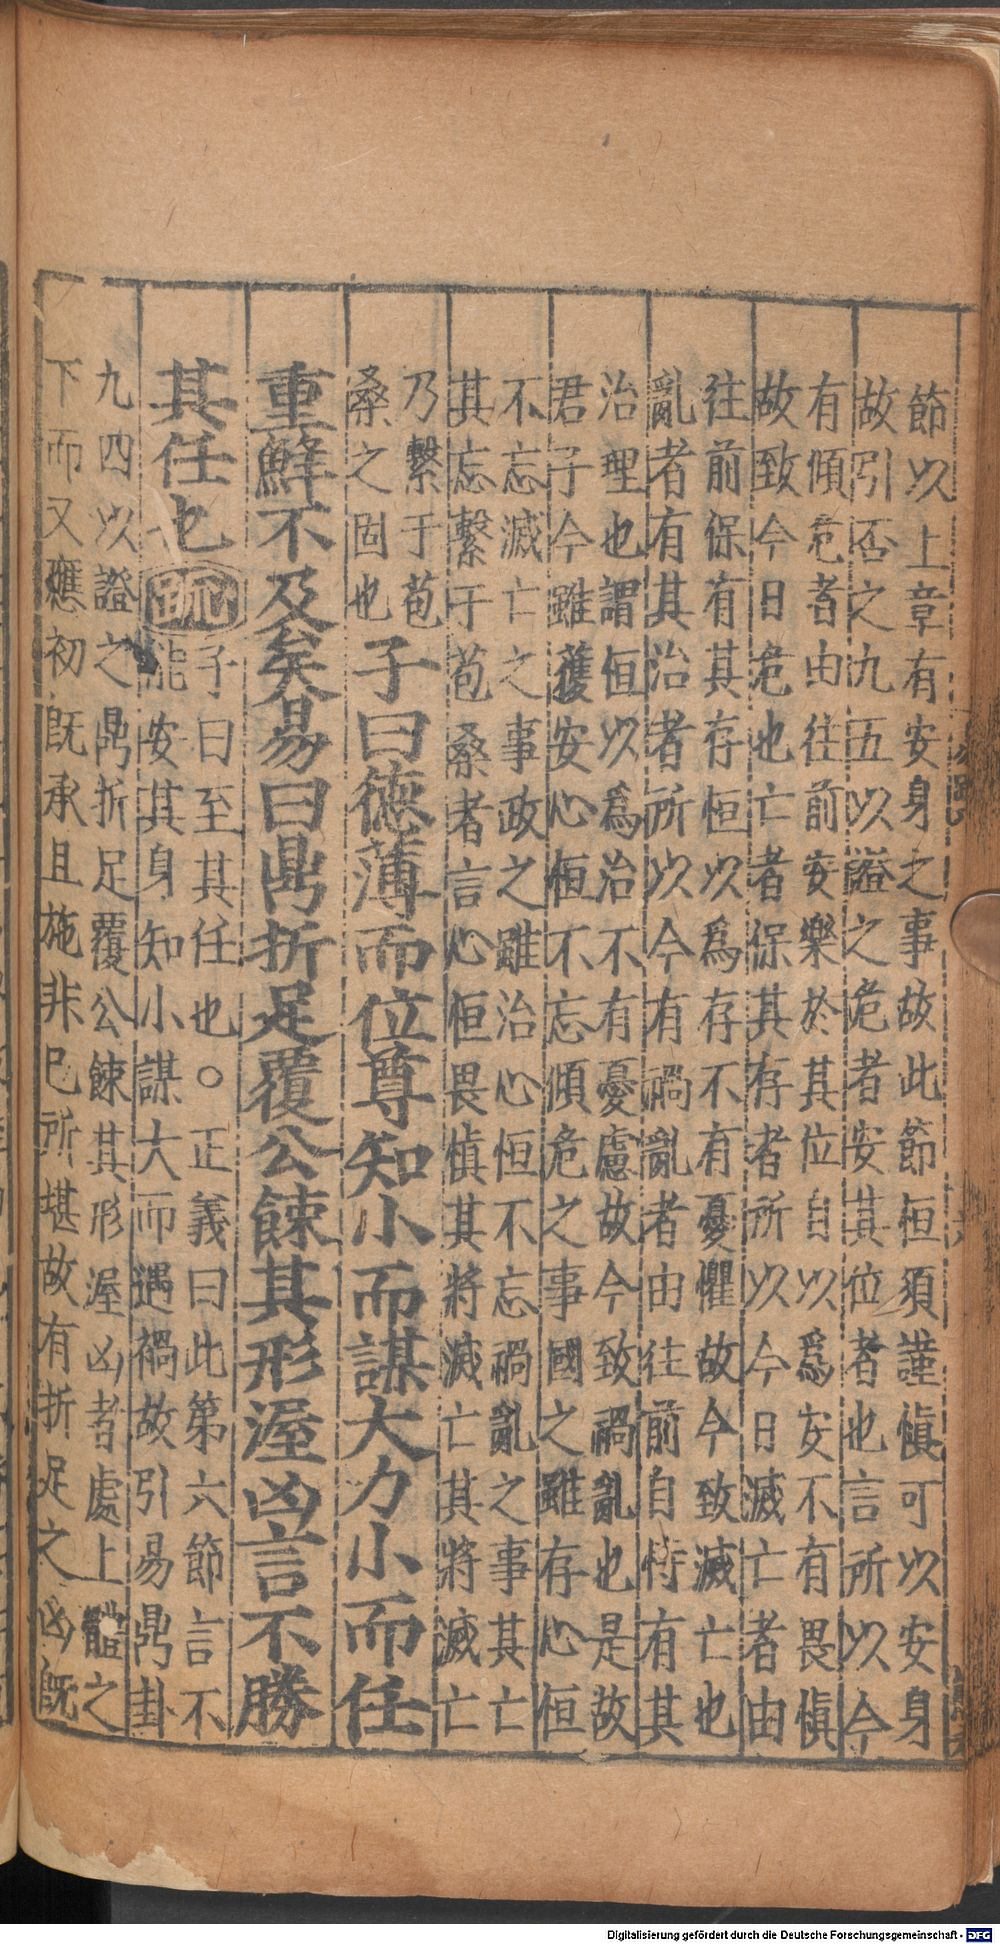 節以上章有安身之事故此節恒須謹慎可以安身
故引否之九五以證之危者安其位者也言所以今
有傾危者由往前安樂於其位自以爲安不有畏慎
故致今日危也亡者保其存者所以今日滅亡者由
往前保有其存恒以爲存不有憂懼故今致滅亡也
亂者有其治者所以今有禍亂者由往前自恃有其
治理也謂恒以爲治不有憂慮故今致禍亂也是故
君子今雖獲安心恒不忘傾危之事國之雖存心恒
不忘滅亡之事政之雖治心恒不忘禍亂之事其亡
其亡繫于苞桑者言心恒畏慎其將滅亡其將滅亡
乃繫于苞
桑之固也
子曰德薄而位尊知小而謀大力小而任
重鮮不及矣易曰鼎折足覆公餗其形渥凶言不勝
其任也
疏
子曰至其任也○正義曰此第六節言不
能安其身知小謀大而遇禍故引易鼎卦
九四以證之鼎折足覆公餗其形渥凶者處上體之
下而又應初既承且施非已所堪故有折足之凶既
Digitalisierung gefördert durch die Deutsche Forschungsgemeinschaft - DFG